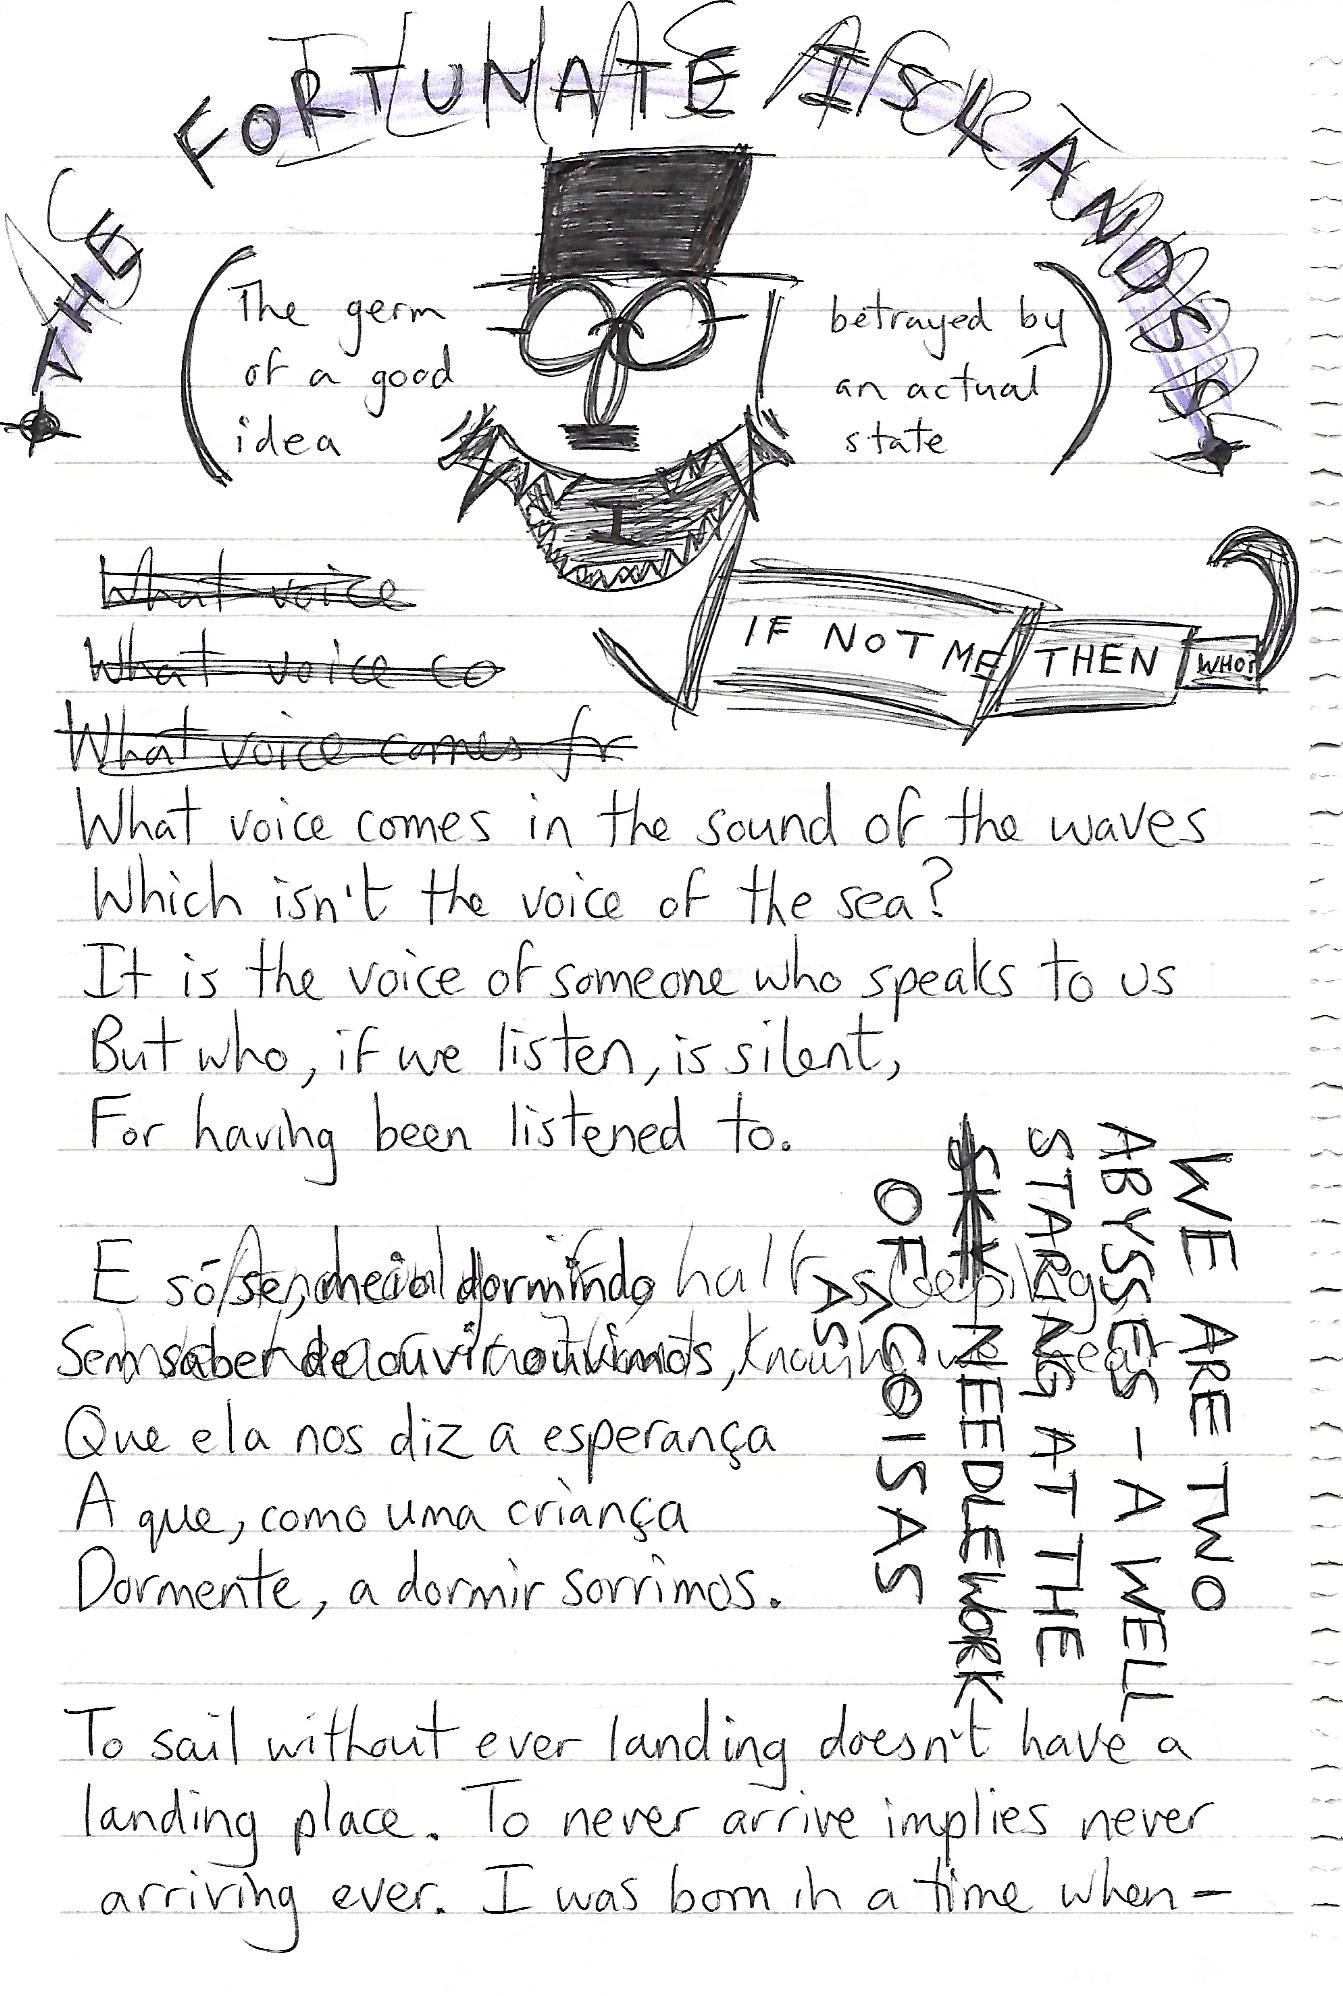 THE FORTUNATE ISLANDS
(The germ
of a good
idea
betrayed by
an actual
state)
I
I
IF NOT ME THEN WHO?
What voice
What voice co
What voice comes fr
What voice comes in the sound of the waves
Which isn't the voice of the sea?
It is the voice of someone who speaks to us
But who, if we listen, is silent,
For having been listened to.
E só se, meio dormindo, half asleeping
Sem saber de ouvir ouvimos, knowing we hear
Que ela nos diz a esperança
A que, como uma criança
Dormente, a dormir sorrimos.
WE ARE TWO
ABYSSES – A WELL
STARING AT THE
SKY NEEDLEWORK
OF COISAS
AS
To sail without ever landing doesn't have a
landing place. To never arrive implies never
arriving ever. I was born in a time when –